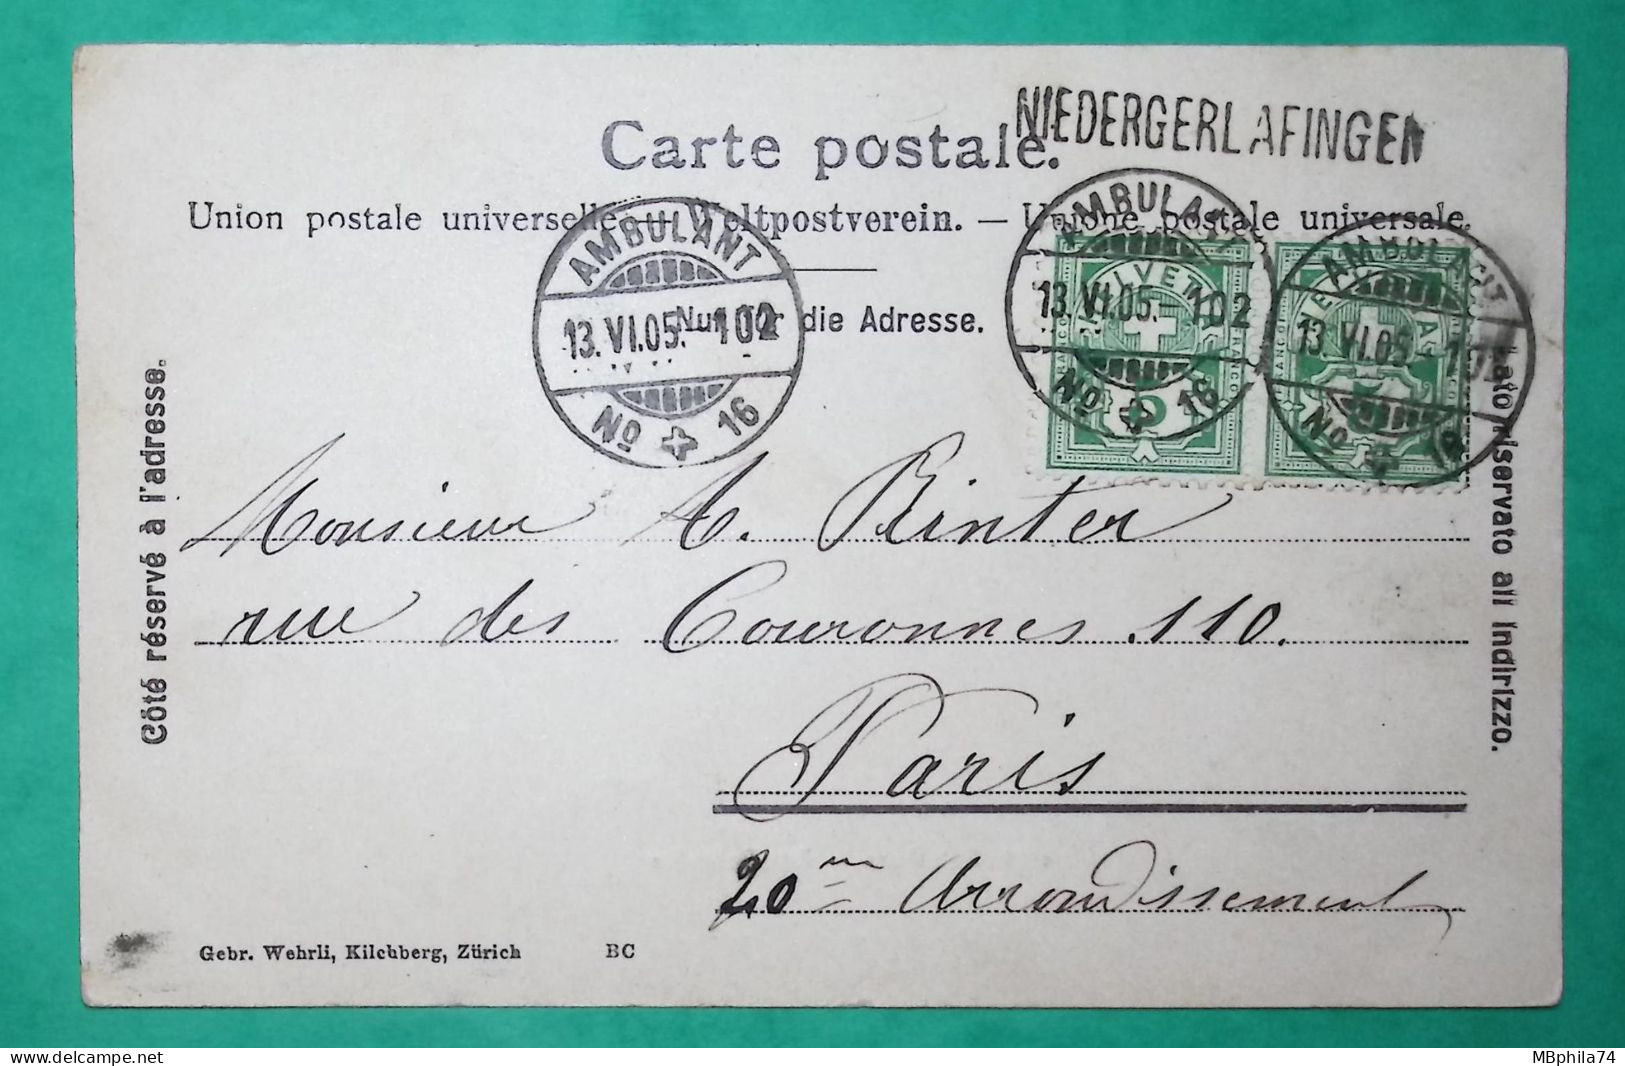 NIEDERGERLAFINGEN
Carte postale.
Union postale universelle. — Weltpostverein. — Unione postale universale.
Nur für die Adresse.
AMBULANT
13.VI.05.-102
No 16
AMBULANT
13.VI.05.-102
No 16
AMBULANT
13.VI.05.-102
No 16
HELVETIA
FRANCO
5
HELVETIA
FRANCO
5
Côté réservé à l'adresse.
Lato riservato all' indirizzo.
Monsieur A. Rinter
rue des Couronnes 110.
Paris
20me Arrondissement
Gebr. Wehrli, Kilchberg, Zürich BC
www.delcampe.net
MBphila74